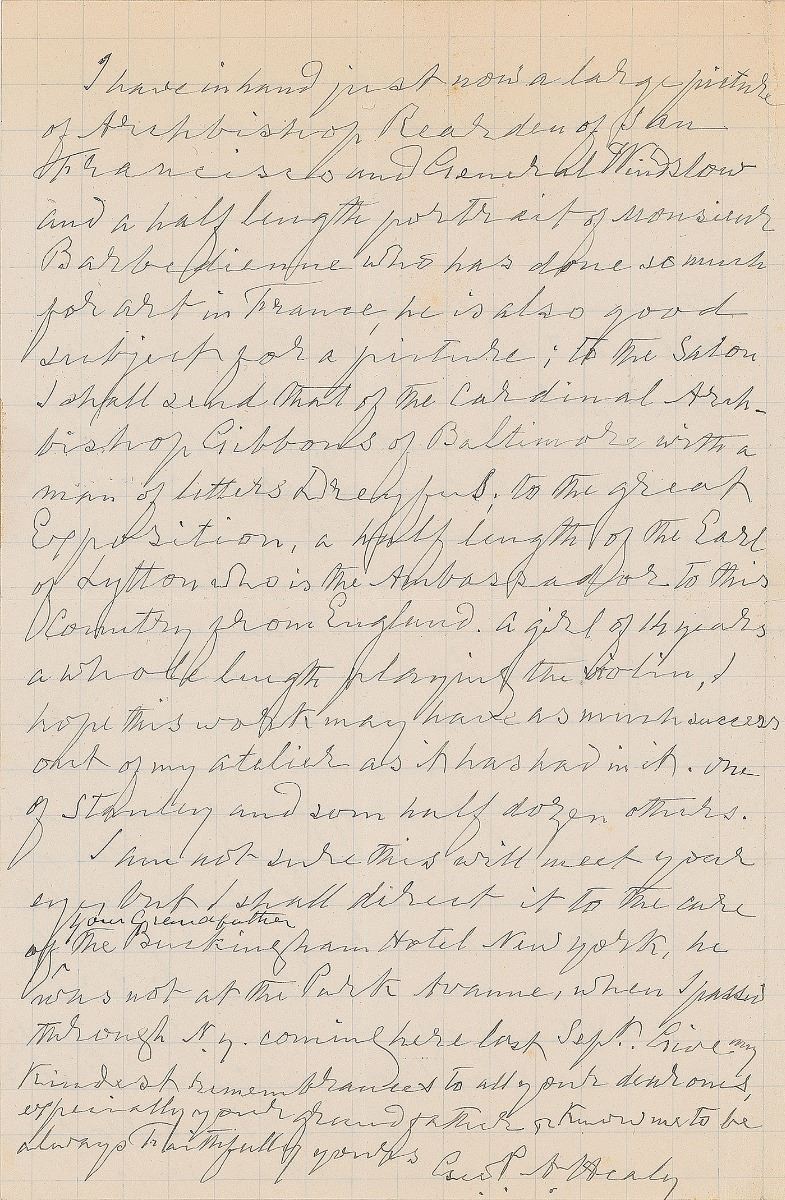 I have in hand just now a large picture
of Archbishop Rearden of San
Francisco and General Winslow
and a half length portrait of Monsieur
Barbedienne who has done so much
for art in France, he is also good
subject for a picture; to the Salon
I shall send that of the Cardinal Arch-
bishop Gibbons of Baltimore with a
man of letters Dreyfus, to the great
Exposition, a half length of the Earl
of Lytton who is the Ambassador to this
Country from England. a girl of 14 years
a whole length playing the Violin, I
hope this work may have as much success
out of my atelier as it has had in it. one
of Stanley and som half dozen others.
I am not sure this will meet your
eye, but I shall direct it to the care
your Grandfather
of the Buckingham Hotel New york, he
was not at the Park Avanue, when I passed
through N.y. coming here last Sept. Give my
Kindest remembrances to all your dear ones,
especially your grandfather & Know me to be
always Faithfully yours
Geo. P. A. Healy